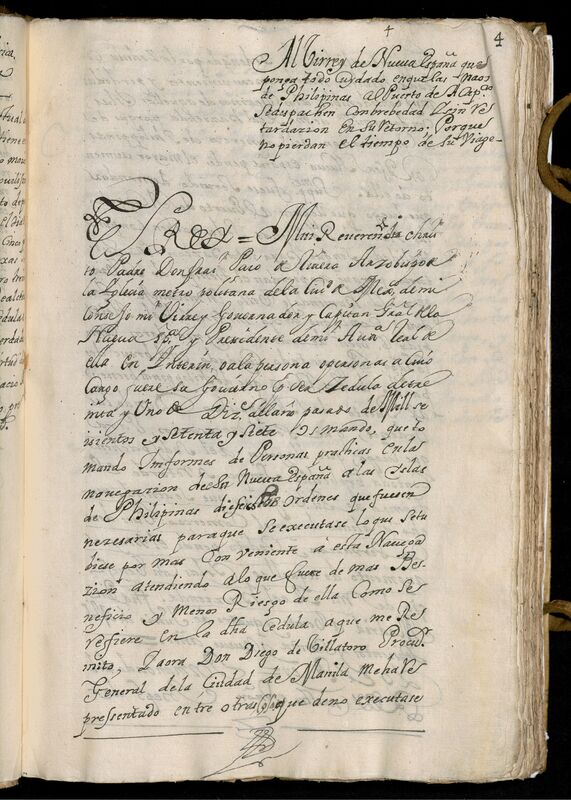 4
4
Al Virrey de Nueva España que
ponga todo cuydado en que las naos
de Philipinas al Puerto de Acap.co
Sedespachen Conbrebedad y sin Re
tardazion En Su Retorno; Porque
no pierdan el tiempo de su Viage
El Rey = Mui Reverendo in Chris
to Padre Don fray Paio de Rivera Arzobispo de
la Iglesia metropolitana dela Ciud de Mex.co demi
Consejo mi Virrey Governador y Capitan Gral de la
Nueva Esp.a y Presidente demi Aud.a Real de
ella En Ynterin, o ala persona o personas a Cuio
Cargo fuere su Governo Por Zedula de tre
inta y Uno de Diz.e del año pasado de Mill se
isientos y Setenta y Siete Os mando, que to
mando Imformes de Personas practicas en las
navegazion de la Nueva España a las Islas
de Philipinas dieseis las Ordenes que fuesen
nezesarias paraque Se executase lo que Setu
biese por mas Conveniente á esta Navega
zion atendiendo a lo que fuere de mas Be
neficio y Menor Riesgo de ella Como Se
refiere en la dha Cedula aque me Re
mito, Y aora Don Diego de Villatoro Procu.r
General dela Ciudad de Manila meha Re
pressentado entre otras cosas que deno executase